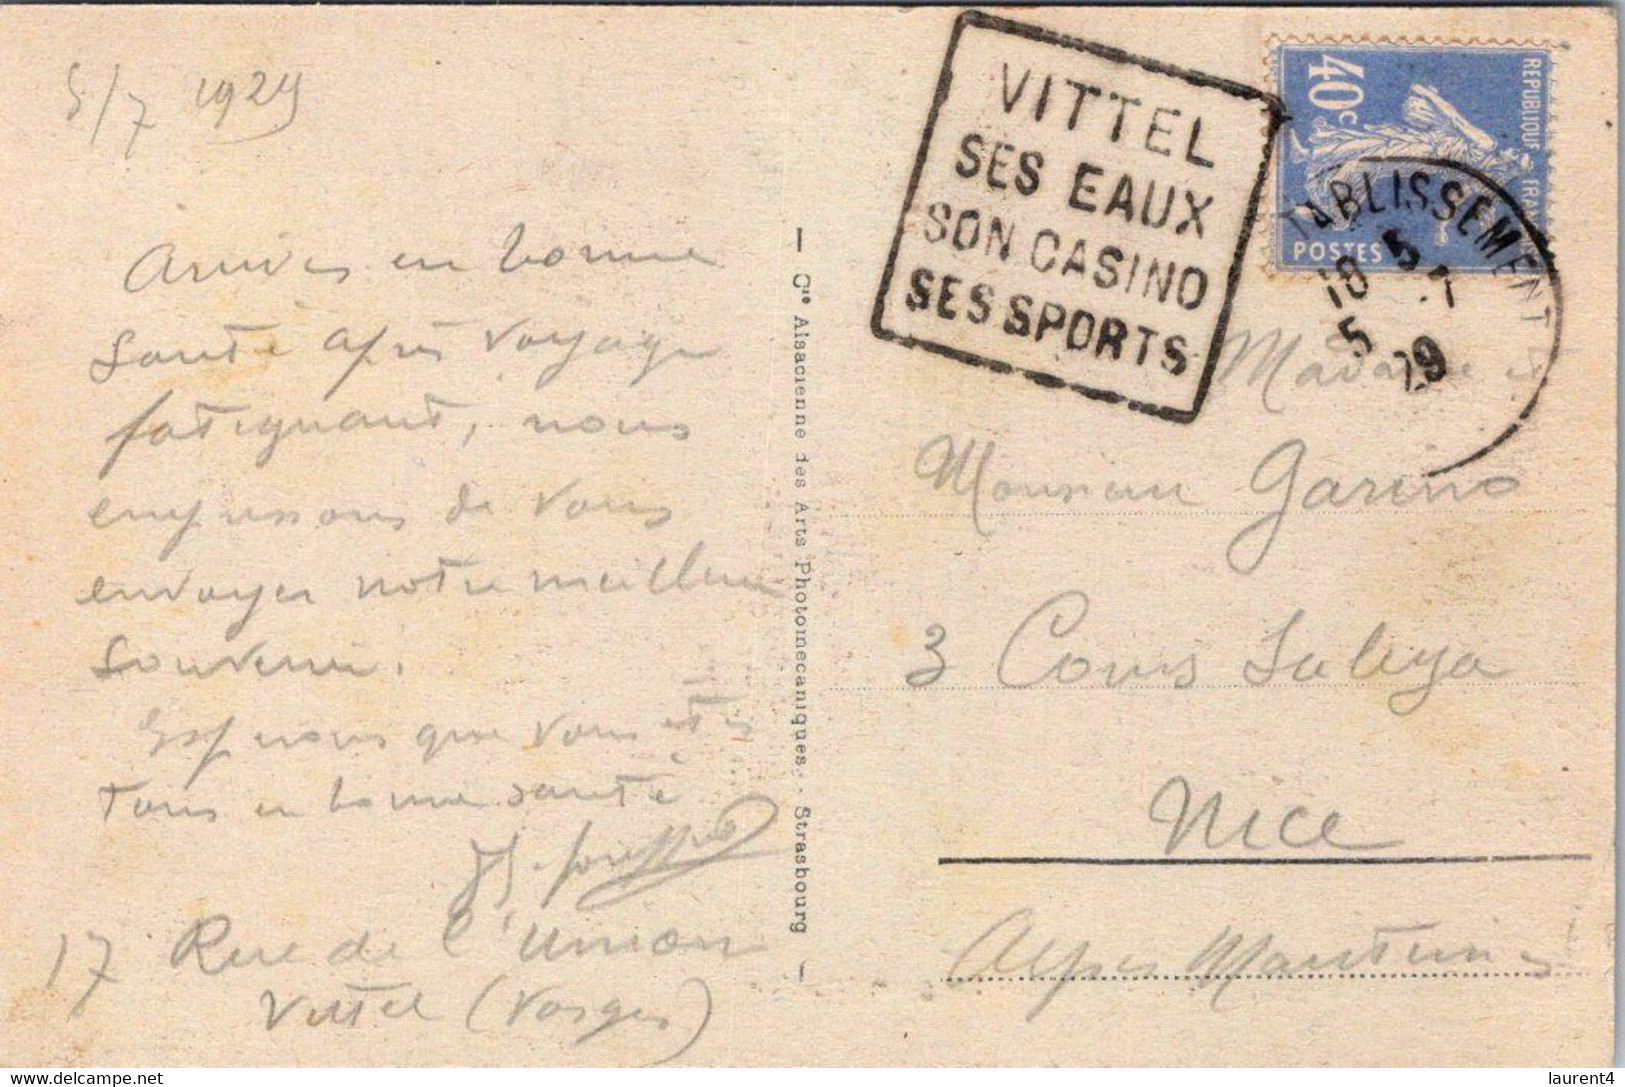 5/7 1929
Arrivés en bonne
santé après voyage
fatiguant, nous
empressons de vous
envoyer notre meilleur
souvenir.
Espérons que vous êtes
tous en bonne santé
17 Rue de l'Union
Vittel (Vosges)
— Cie Alsacienne des Arts Photomecaniques - Strasbourg —
VITTEL
SES EAUX
SON CASINO
SES SPORTS
40c
REPUBLIQUE FRANÇAISE
POSTES
TABLISSEMENT
18 5
5 -7
29
Madame et
Monsieur Garino
3 Cours Saleya
Nice
Alpes Maritimes
delcampe.net
laurent4